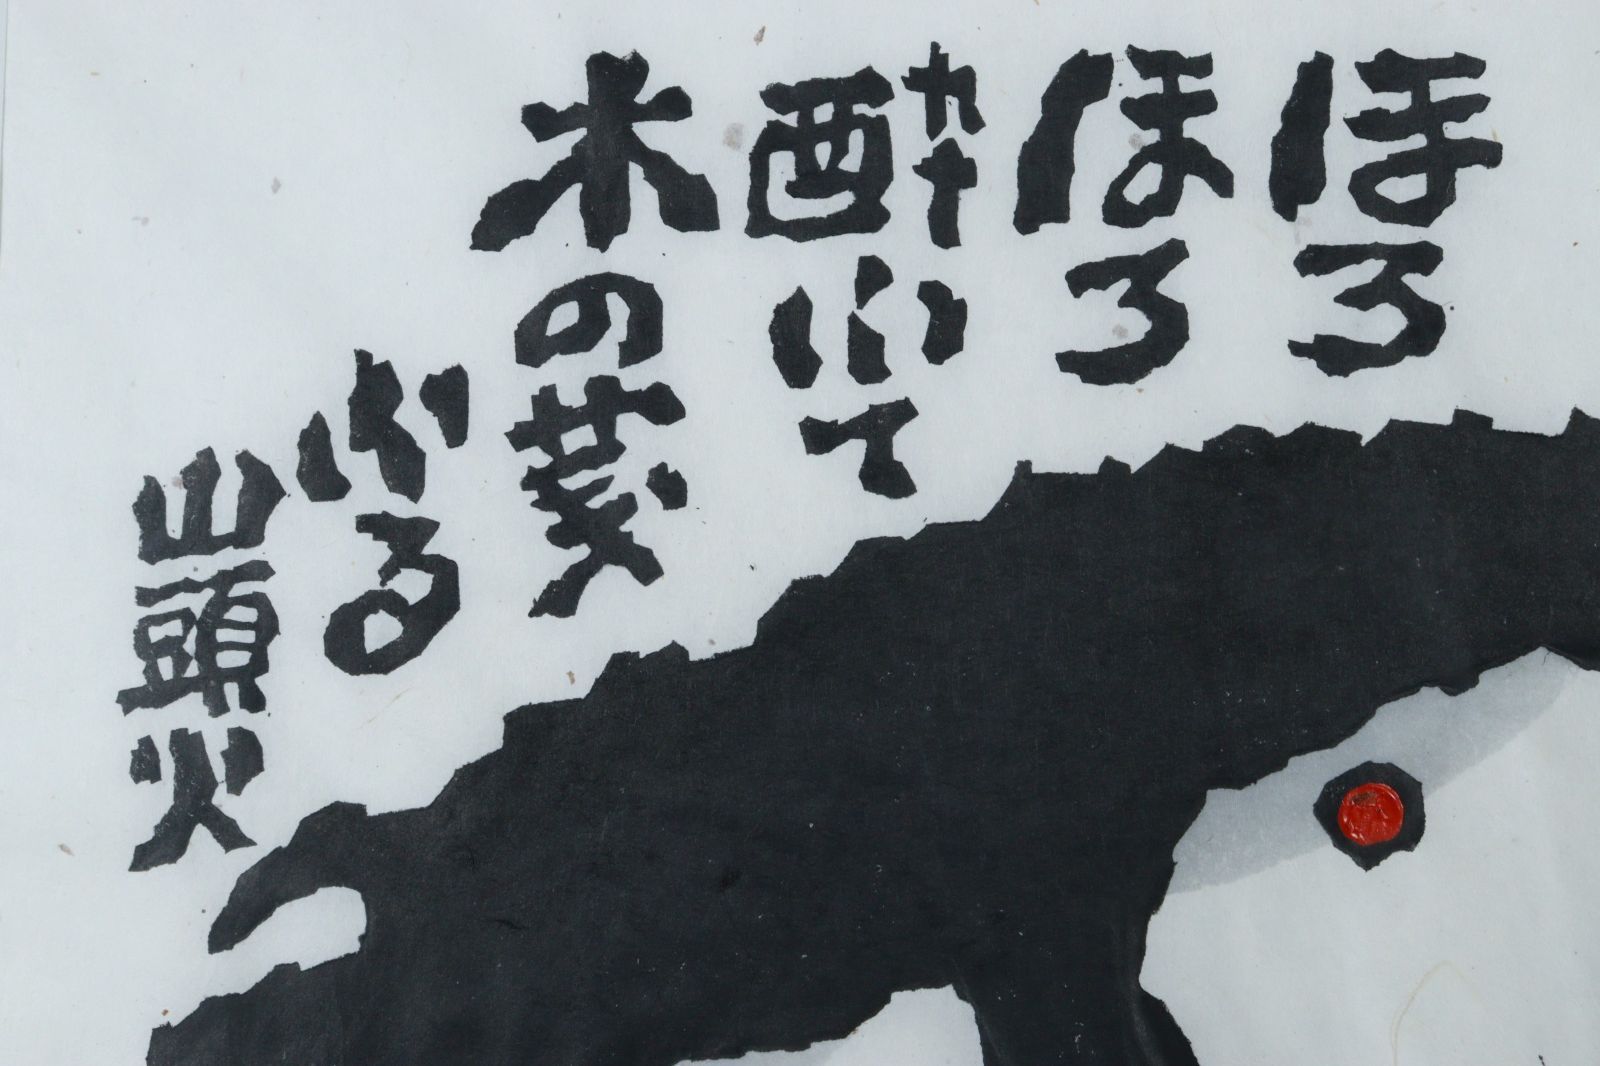 ほろ
ほろ
酔ふて
木の葉
ふる
山頭火